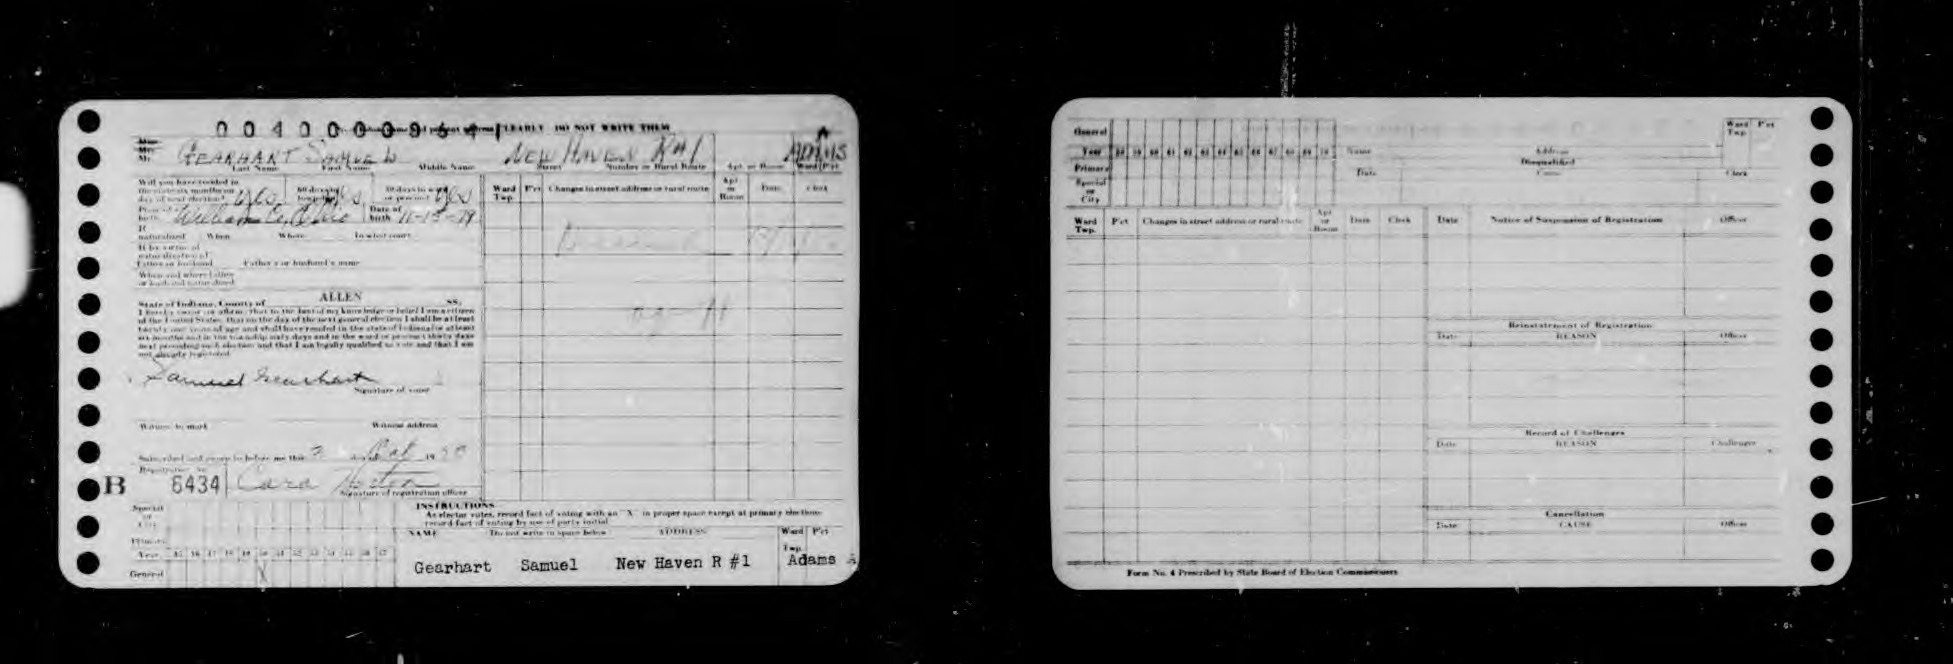 0 0 4 0 0 0 0 9 5 4 1
CLEARLY DO NOT WRITE THEM
GEARHART SAMUEL NEW HAVEN R#1 ADAMS
Last Name First Name Middle Name Street Number or Rural Route Apt. or Room Ward Pct
Will you have resided in
the state six months on
day of next election? Yes 60 days in township? Yes 30 days in ward or precinct? Yes
Place of birth William Co, Ohio Date of birth 11-15-79
If naturalized When Where In what court
If by virtue of
naturalization of
Father or husband Father's or husband's name
When and where father
or husband naturalized
Ward Twp. P'ct Changes in street address or rural route Apt or Room Date Clerk
State of Indiana, County of ALLEN SS:
I hereby swear (or affirm) that to the best of my knowledge or belief I am a citizen
of the United States, that on the day of the next general election I shall be at least
twenty-one years of age and shall have resided in the state of Indiana for at least
six months and in the township sixty days and in the ward or precinct thirty days
next preceding such election and that I am legally qualified to vote and that I am
not already registered.
Samuel Gearhart
Signature of voter
Witness to mark Witness address
Subscribed and sworn to before me this day of 19
Registration No.
B 6434
Signature of registration officer
INSTRUCTIONS
As elector votes, record fact of voting with an "X" in proper space except at primary elections
record fact of voting by use of party initial
Special or City
Primary
Year 35 36 37 38 39 40 41 42 43 44 45 46 47
General X
NAME Do not write in space below ADDRESS Ward P'ct
Twp.
Gearhart Samuel New Haven R #1 Adams A
General
Year 58 59 60 61 62 63 64 65 66 67 68 69 70
Primary
Special or City
Name Address Ward Twp. P'ct
Disqualified
Date Cause Clerk
Ward Twp. P'ct Changes in street address or rural route Apt or Room Date Clerk
Date Notice of Suspension of Registration Officer
Reinstatement of Registration
Date REASON Officer
Record of Challenges
Date REASON Challenger
Cancellation
Date CAUSE Officer
Form No. 4 Prescribed by State Board of Election Commissioners